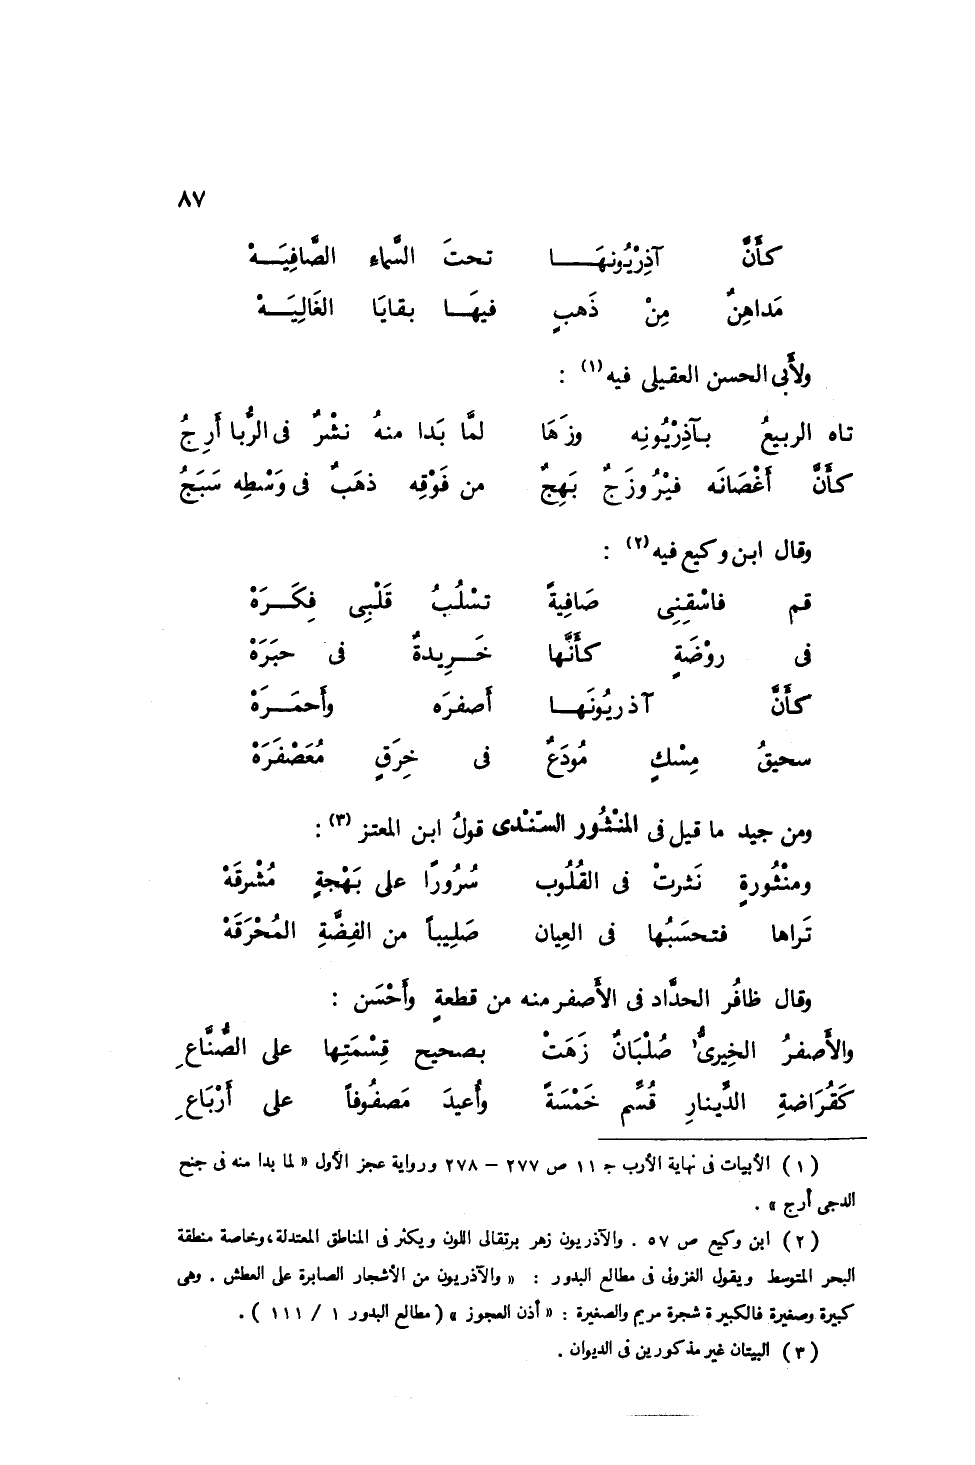 ٨٧
كأَنَّ آذِرْيُونهَـــا تحتَ السَّماءِ الصَّافِيَـــهْ
مَداهِنٌ مِنْ ذَهبٍ فيهَـــا بقايَا الغَالِيَـــهْ
ولأَبى الحسن العقيلى فيه(١) :
تاه الربيعُ بـآذِرْيُونِه وزَهَا لمَّا بَدا منهُ نشْرٌ فى الرُّبا أَرِجُ
كأَنَّ أَغْصَانَه فيْرُوزَجٌ بَهِجٌ من فَوْقِه ذهَبٌ فى وَسْطِه سَبَجُ
وقال ابن وكيع فيه(٢) :
قم فاسْقِنِى صَافِيةً تسْلُبُ قَلْبِى فِكَـــرَهْ
فى روْضَةٍ كأَنَّها خَـــرِيدةٌ فى حبَرَهْ
كأَنَّ آذريُونَهـــا أَصفرَه وأَحمَـــرَهْ
سحيقُ مِسْكٍ مُودَعٌ فى خِرَقٍ مُعَصْفَرَهْ
ومن جيد ما قيل فى المَنْثُور السّنْدى قولُ ابن المعتز(٣) :
ومنْثُورةٍ نَثرتْ فى القُلُوب سُرُورًا على بَهْجةٍ مُشْرقَهْ
تَراها فتحسَبُها فى العِيان صَلِيباً من الفِضَّةِ المُحْرَقَهْ
وقال ظافُر الحدَّاد فى الأَصفر منه من قطعةٍ وأَحْسَن :
والأَصفرُ الخِيرىُّ صُلْبَانٌ زَهَتْ بصحيح قِسْمَتِها على الصُّنَّاعِ
كَقُرَاضةِ الدِّينارِ قُسِّم خَمْسَةً وأُعيدَ مَصفُوفاً على أَرْبَاعِ
(١) الأبيات فى نهاية الأرب جـ ١١ ص ٢٧٧ – ٢٧٨ ورواية عجز الأول « لما بدا منه فى جنح
الدجى أرج » .
(٢) ابن وكيع ص ٥٧ . والآذريون زهر برتقالى اللون ويكثر فى المناطق المعتدلة ، وخاصة منطقة
البحر المتوسط ويقول الغزولى فى مطالع البدور : « والآذريون من الأشجار الصابرة على العطش . وهى
كبيرة وصغيرة فالكبيرة شجرة مريم والصغيرة : « أذن العجوز » ( مطالع البدور ١ / ١١١ ) .
(٣) البيتان غير مذكورين فى الديوان .